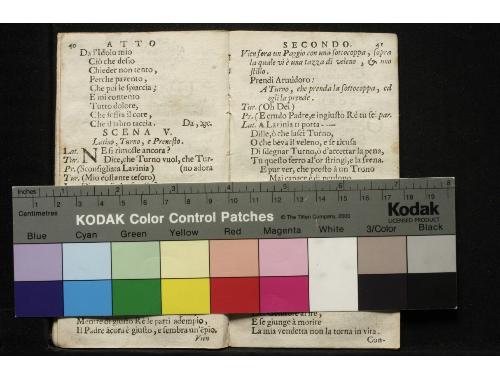 40 ATTO
Da l'Idolo mio
Ciò che desio
Chieder non tento,
Perche pavento,
Che poi le spiaccia;
E mi contento
Tutto dolore,
Che
Che il labro taccia. Da, &c.
SCENA V.
Latino, Turno, e Premesto.
Lat. NE si rimosse ancora?
Tur. Dice, che Turno vuol, che Tur-
Pr. (Sconsigliata Lavinia) (no adora
Tur. (Mio costante tesoro)
Mentre di giusto Rè le parti adempio,
Il Padre ancora è giusto, e sembra un'empio.
Vien
SECONDO. 41
Vien fora un Paggio con una sottocoppa, sopra
la quale vi è una tazza di veleno, & uno
stilo.
Prendi Armidoro:
A Turno, che prenda la sottocoppa, ed
egli la prende.
Tur. (Oh Dei)
Pr. (E crudo Padre, e ingiusto Rè tu sei) par.
Lat. A Lavinia ti porta ——
Dille, ò che lasci Turno,
O che beva il veleno, e se ricusa
Di sdegnar Turno, ò d'accettar la pena,
Tu quello ferro al'or stringi, e la svena.
E pur ver, che presto à un Trono
E se giunge à morire
La mia vendetta non la torna in vita.
Con-
Inches 1 2 3 4 5 6 7 8
Centimetres 1 2 3 4 5 6 7 8 9 10 11 12 13 14 15 16 17 18 19
KODAK Color Control Patches
© The Tiffen Company, 2000
Kodak
LICENSED PRODUCT
Blue Cyan Green Yellow Red Magenta White 3/Color Black